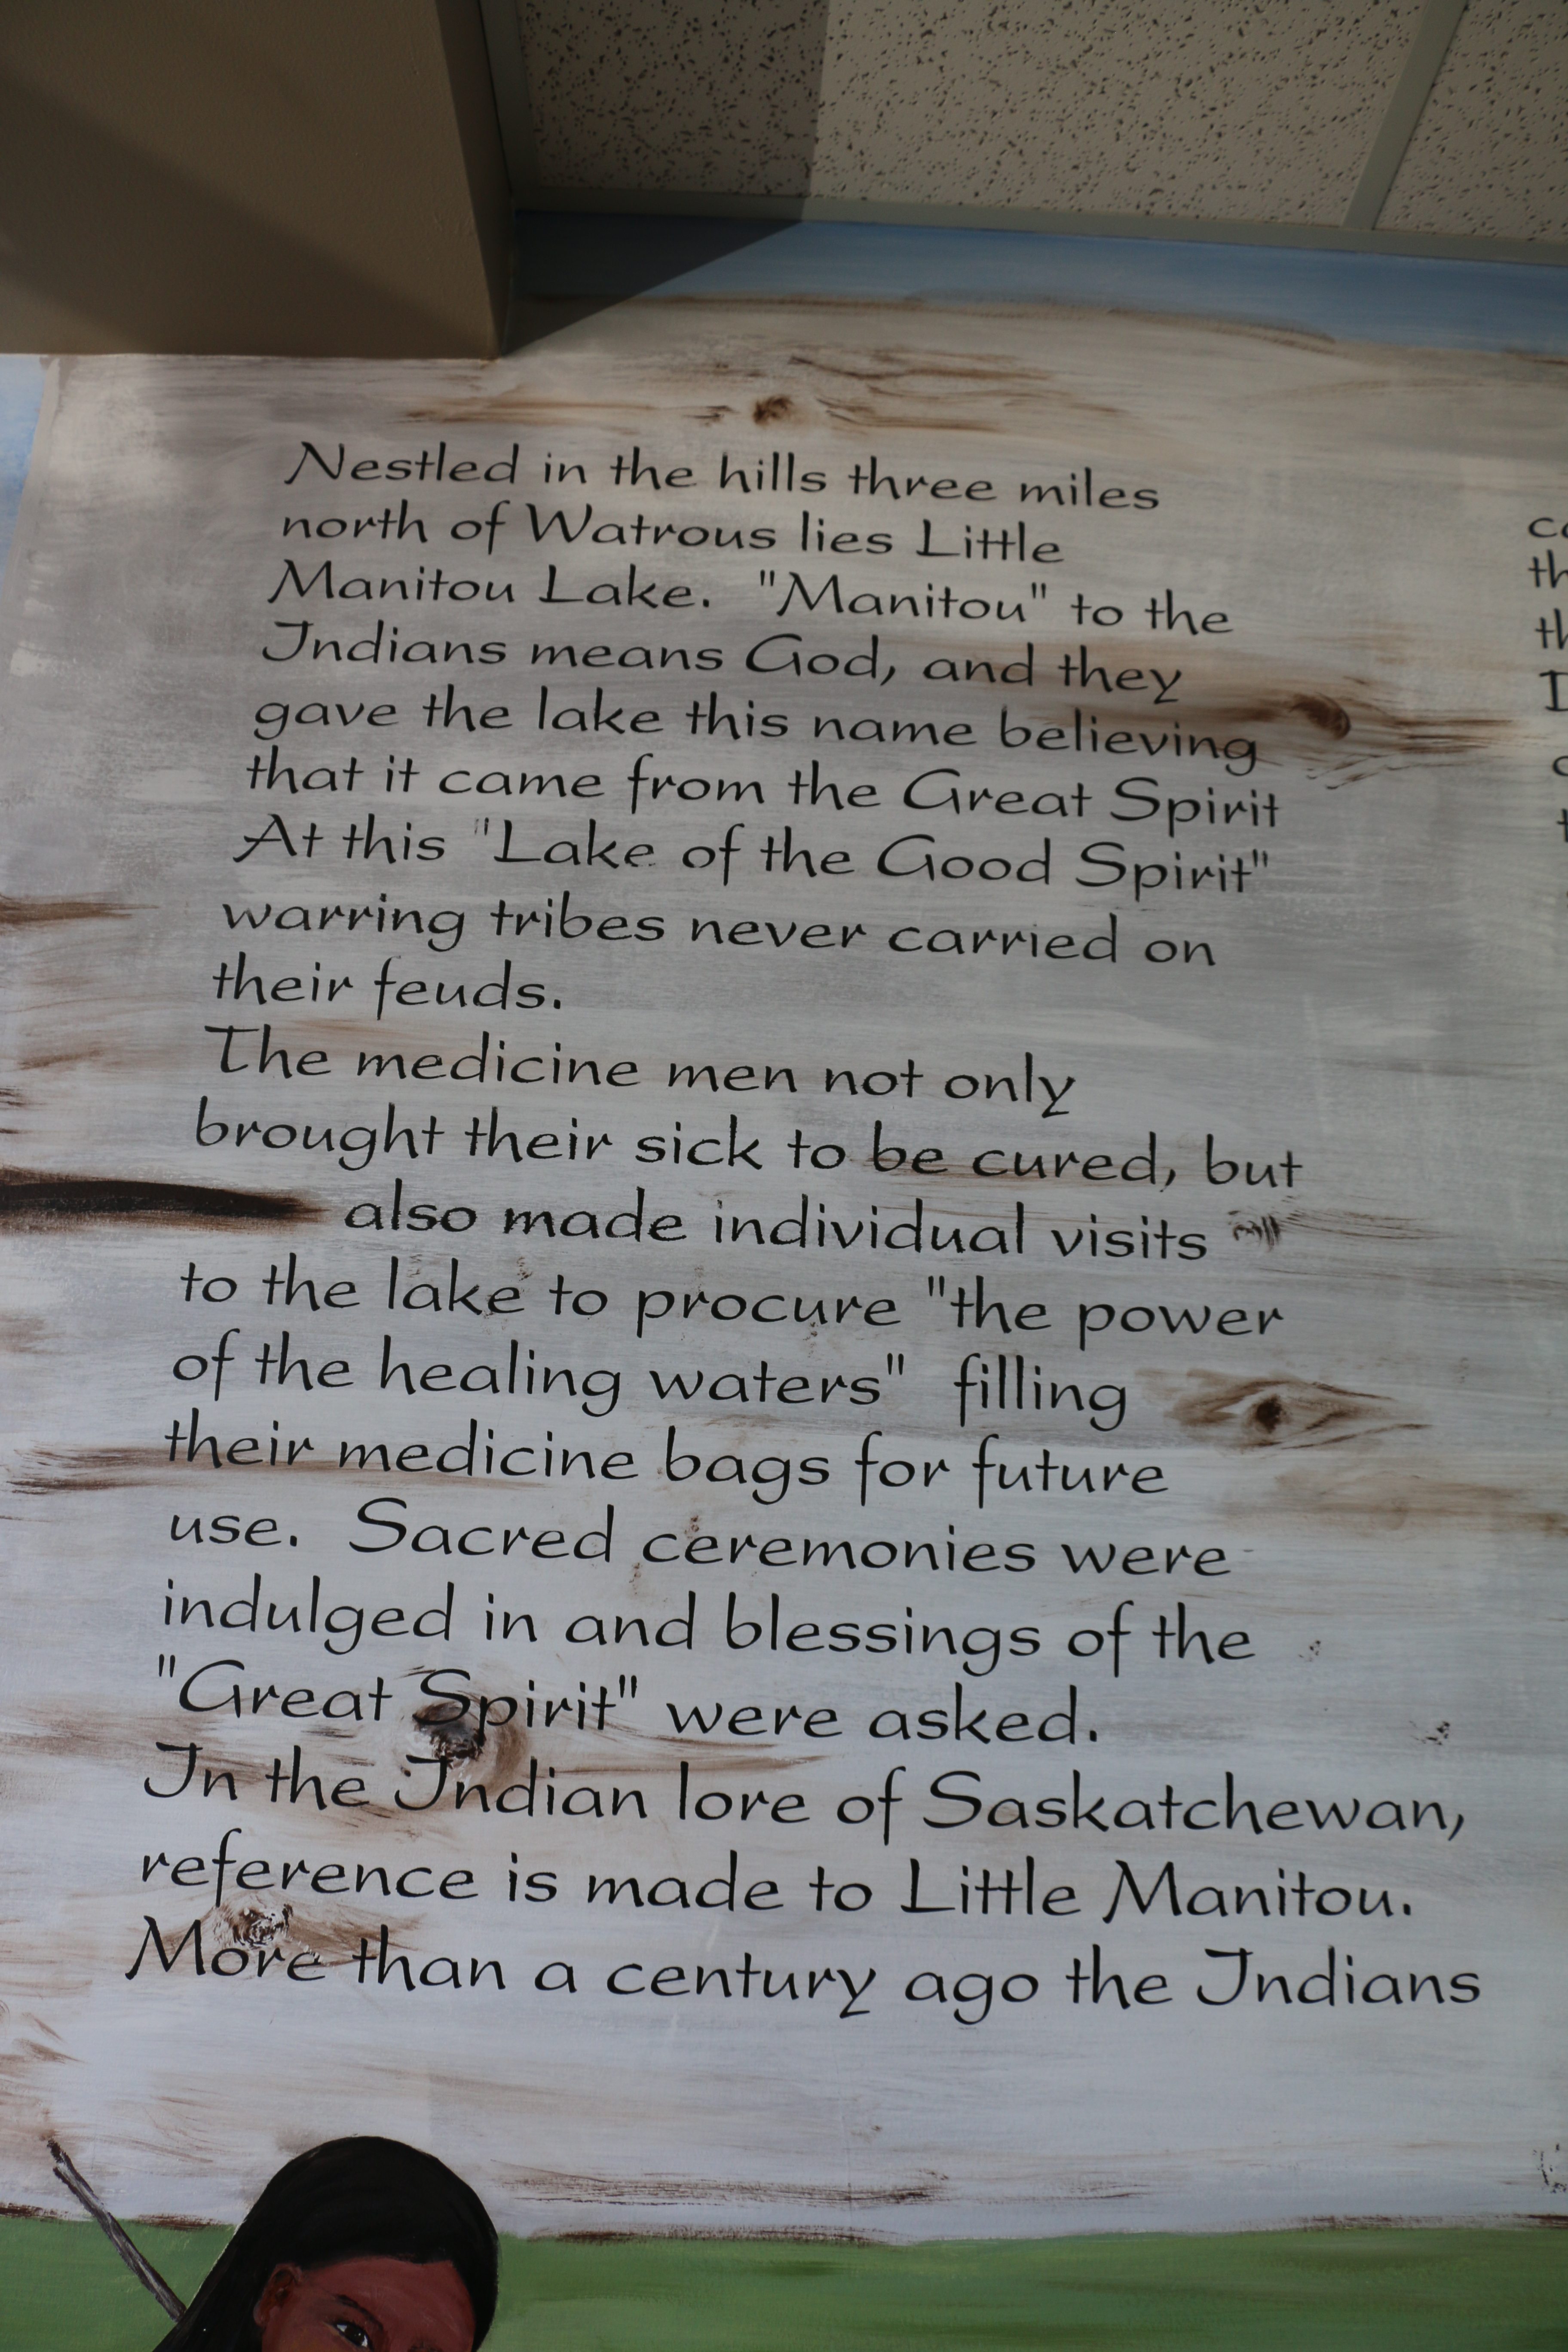 Nestled in the hills three miles
north of Watrous lies Little
Manitou Lake. "Manitou" to the
Indians means God, and they
gave the lake this name believing
that it came from the Great Spirit
At this "Lake of the Good Spirit"
warring tribes never carried on
their feuds.
The medicine men not only
brought their sick to be cured, but
also made individual visits
to the lake to procure "the power
of the healing waters" filling
their medicine bags for future
use. Sacred ceremonies were
indulged in and blessings of the
"Great Spirit" were asked.
In the Indian lore of Saskatchewan,
reference is made to Little Manitou.
More than a century ago the Indians